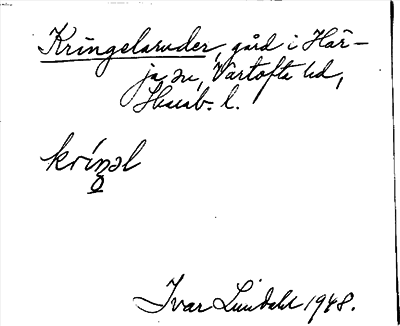 Kringelaruder, gård i Här-
ja sn, Vartofta hd,
Skarab. l.
kríŋəl
o
Ivar Lundahl 1948.